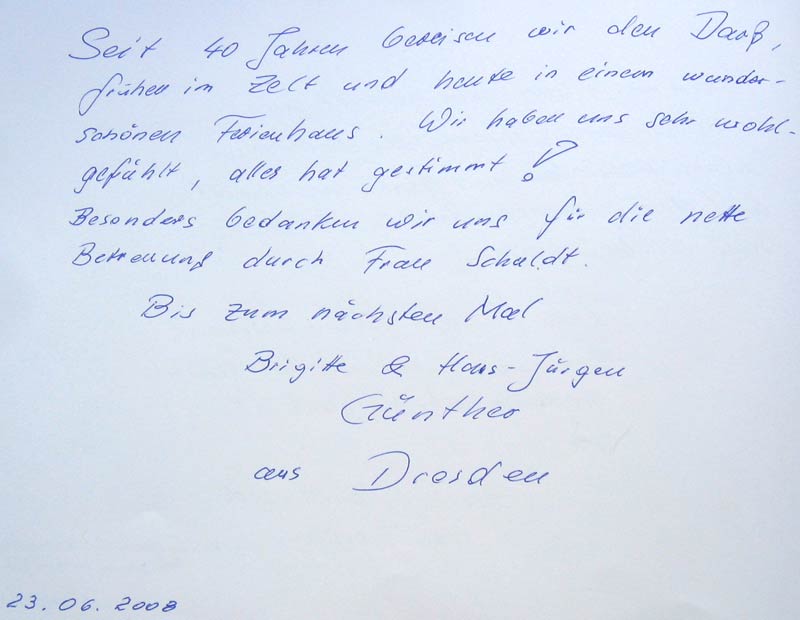 Seit 40 Jahren bereisen wir den Darß,
früher im Zelt und heute in einem wunder-
schönen Ferienhaus. Wir haben uns sehr wohl-
gefühlt, alles hat gestimmt!
Besonders bedanken wir uns für die nette
Betreuung durch Frau Schuldt.
Bis zum nächsten Mal
Brigitte & Hans-Jürgen
Günther
aus Dresden
23.06.2008